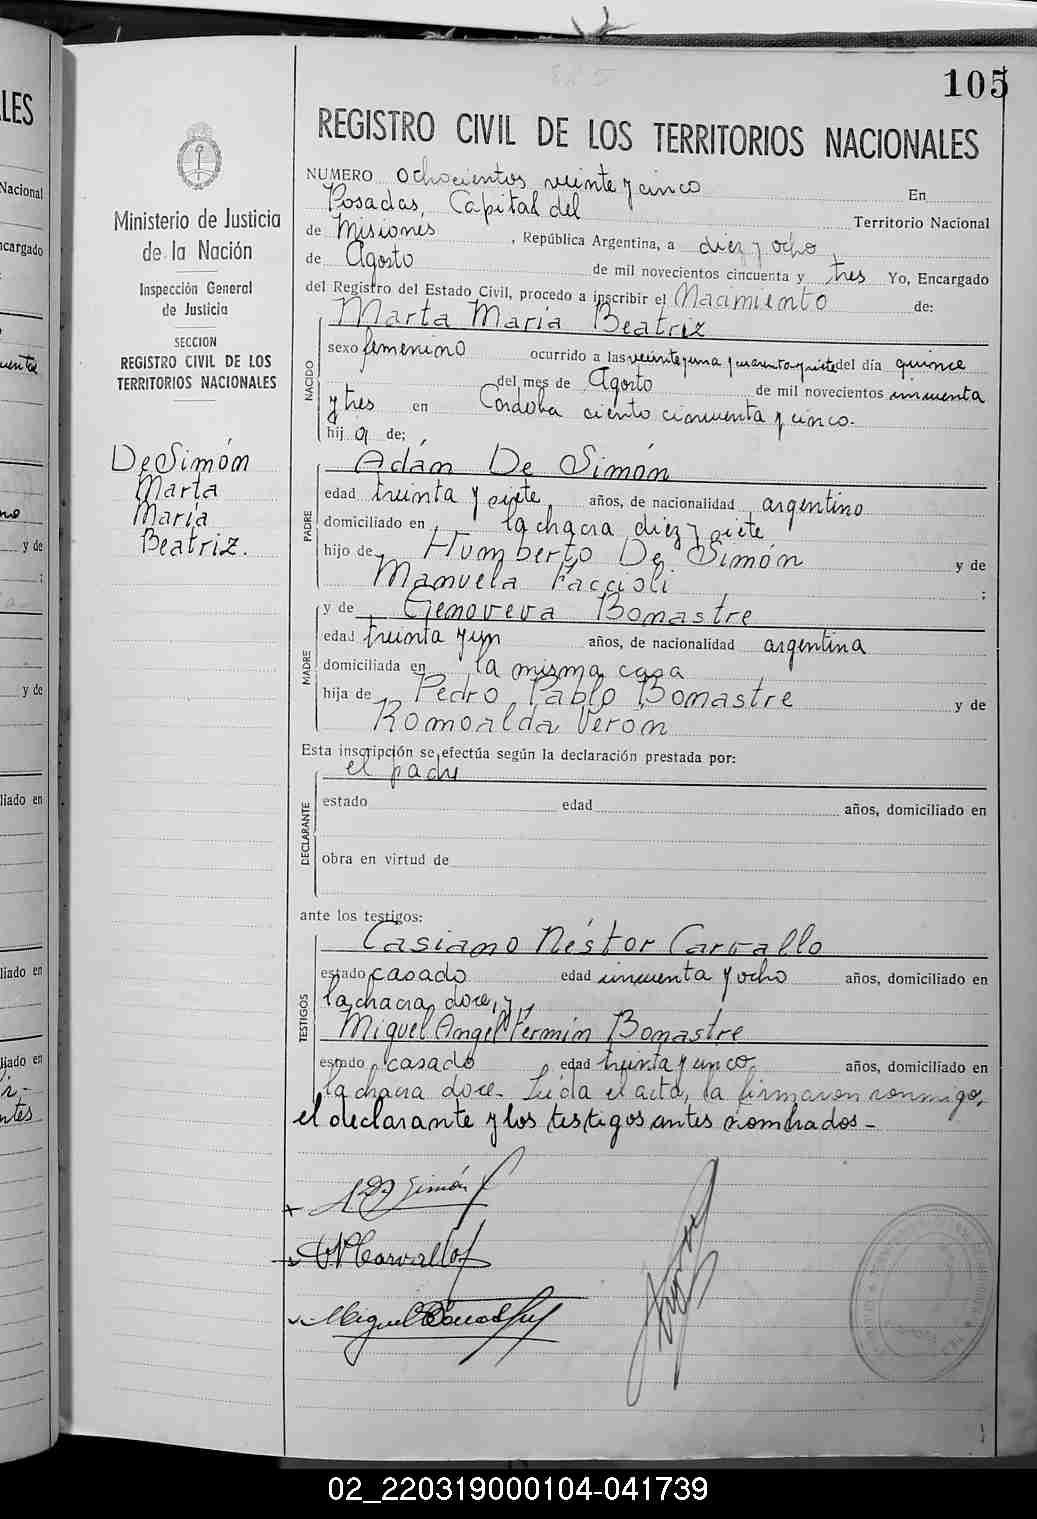 105
REGISTRO CIVIL DE LOS TERRITORIOS NACIONALES
Ministerio de Justicia
de la Nación
Inspección General
de Justicia
SECCION
REGISTRO CIVIL DE LOS
TERRITORIOS NACIONALES
De Simón
Marta
María
Beatriz.
NUMERO ochocientos veinte y cinco En
Posadas, Capital del Territorio Nacional
de Misiones, República Argentina, a diez y ocho
de Agosto de mil novecientos cincuenta y tres Yo, Encargado
del Registro del Estado Civil, procedo a inscribir el Nacimiento de:
Marta María Beatriz
NACIDO
sexo femenino ocurrido a las veinte y una y cuarenta y siete del día quince
del mes de Agosto de mil novecientos cincuenta
y tres en Córdoba ciento cincuenta y cinco.
hij a de;
Adán De Simón
PADRE
edad treinta y siete años, de nacionalidad argentino
domiciliado en la chacra diez y siete
hijo de Humberto De Simón y de
Manuela Faccioli ;
y de Genoveva Bonastre
MADRE
edad treinta y un años, de nacionalidad argentina
domiciliada en la misma casa
hija de Pedro Pablo Bonastre y de
Romoalda Veron
Esta inscripción se efectúa según la declaración prestada por:
el padre
DECLARANTE
estado edad años, domiciliado en
obra en virtud de
ante los testigos:
Casiano Néstor Carvallo
TESTIGOS
estado casado edad cincuenta y ocho años, domiciliado en
la chacra doce, y
Miguel Angel Fermín Bonastre
estado casado edad treinta y cinco años, domiciliado en
la chacra doce. Leída el acta, la firmaron conmigo,
el declarante y los testigos antes nombrados -
A D Simón
CN Carvallo
Miguel Bonastre
LES
Nacional
ncargado
y de
;
y de
liado en
liado en
liado en
ntes
02_220319000104-041739